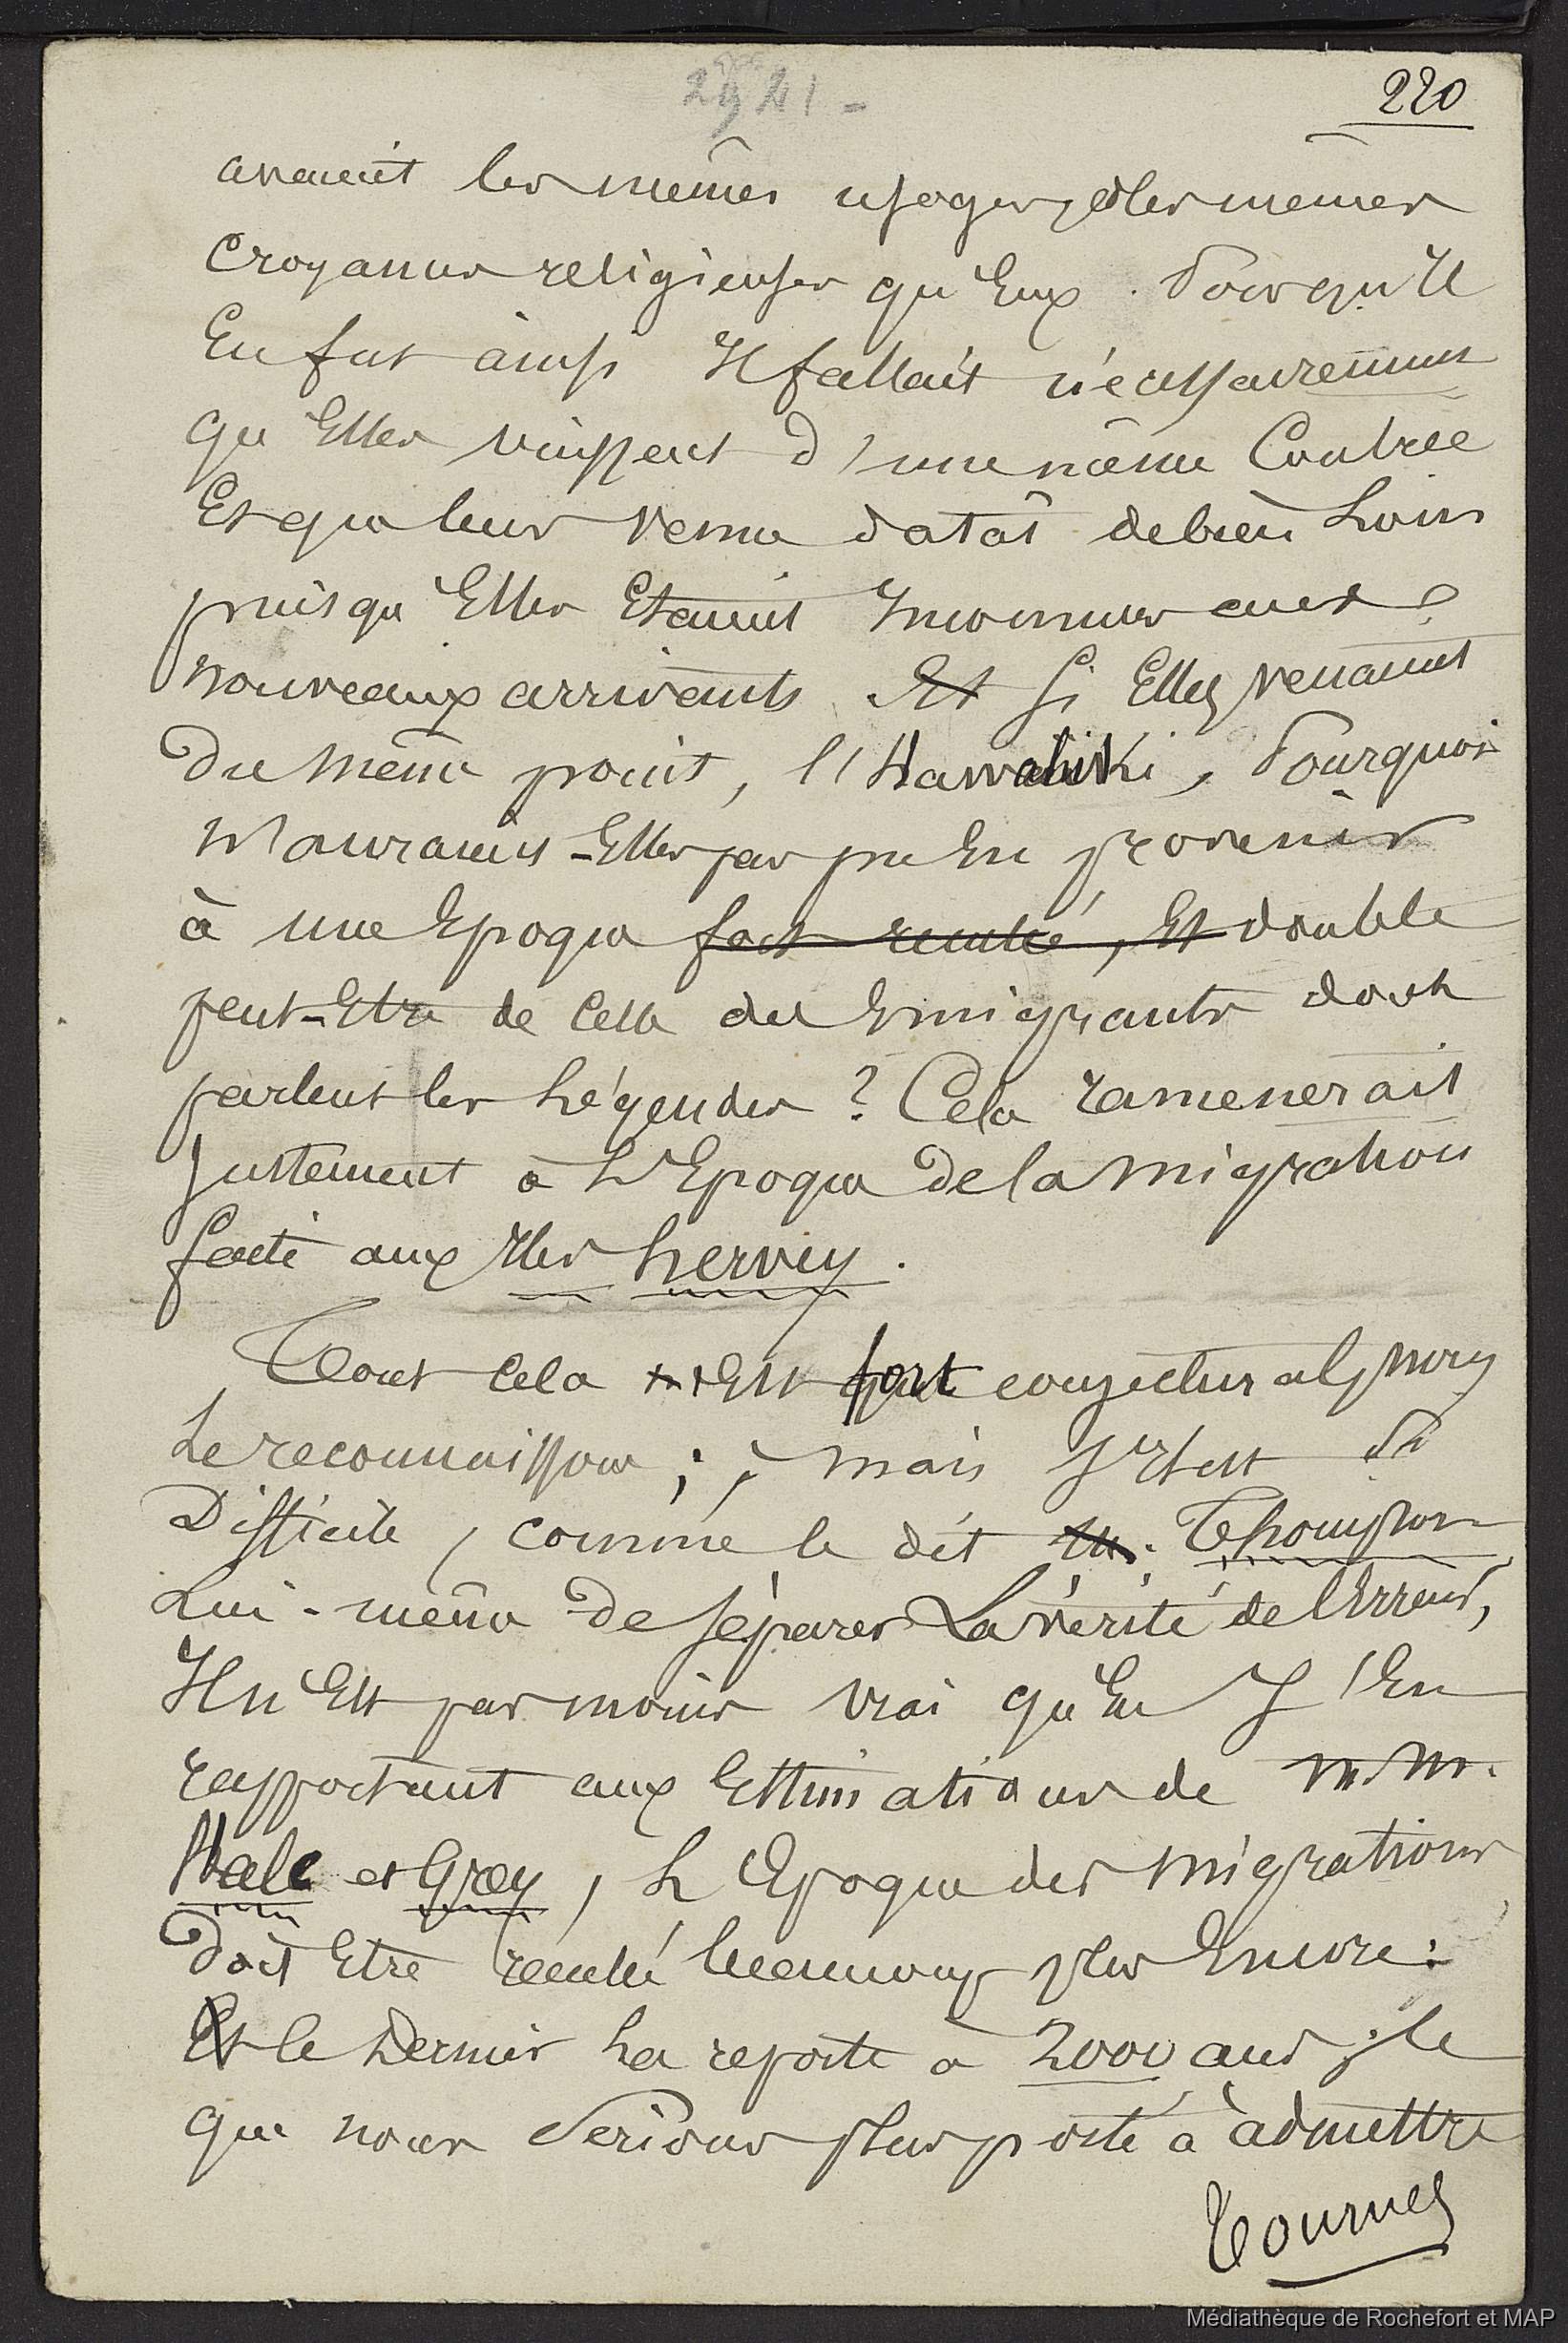 2921 -
220
avaient les mêmes usages, et les mêmes
croyances religieuses qu'Eux. Pour qu'Il
En fut ainsi Il fallait nécessairement
qu'Elles vinssent d'une même Contrée
Et que leur venue datât de bien Loin
puisqu'Elles Etaient Inconnues aux
nouveaux arrivants. Et si Elles venaient
Du même point, l'Hawahiki, Pourquoi
N'auraient-Elles pas pu En provenir
à une Epoque fort reculée, Et double
peut-Etre de Celle des Emigrants dont
parlent les Légendes ? Cela ramenerait
Justement à L'Epoque de la migration
faite aux Iles hervey.
Tout Cela Est fort conjectural, nous
Le reconnaissons ; mais s'Il est Si
Difficile, comme le dit M. Thompson
Lui-même de séparer La vérité de l'Erreur,
Il n'Est pas moins vrai qu'En s'En
rapportant aux Estimations de M.M.
Hale et Grey, L'Epoque des migrations
doit Etre reculée beaucoup plus Encore :
Et le Dernier La reporte à 2000 ans ; Ce
que nous Serions plus porté à admettre
Tournez
Médiathèque de Rochefort et MAP